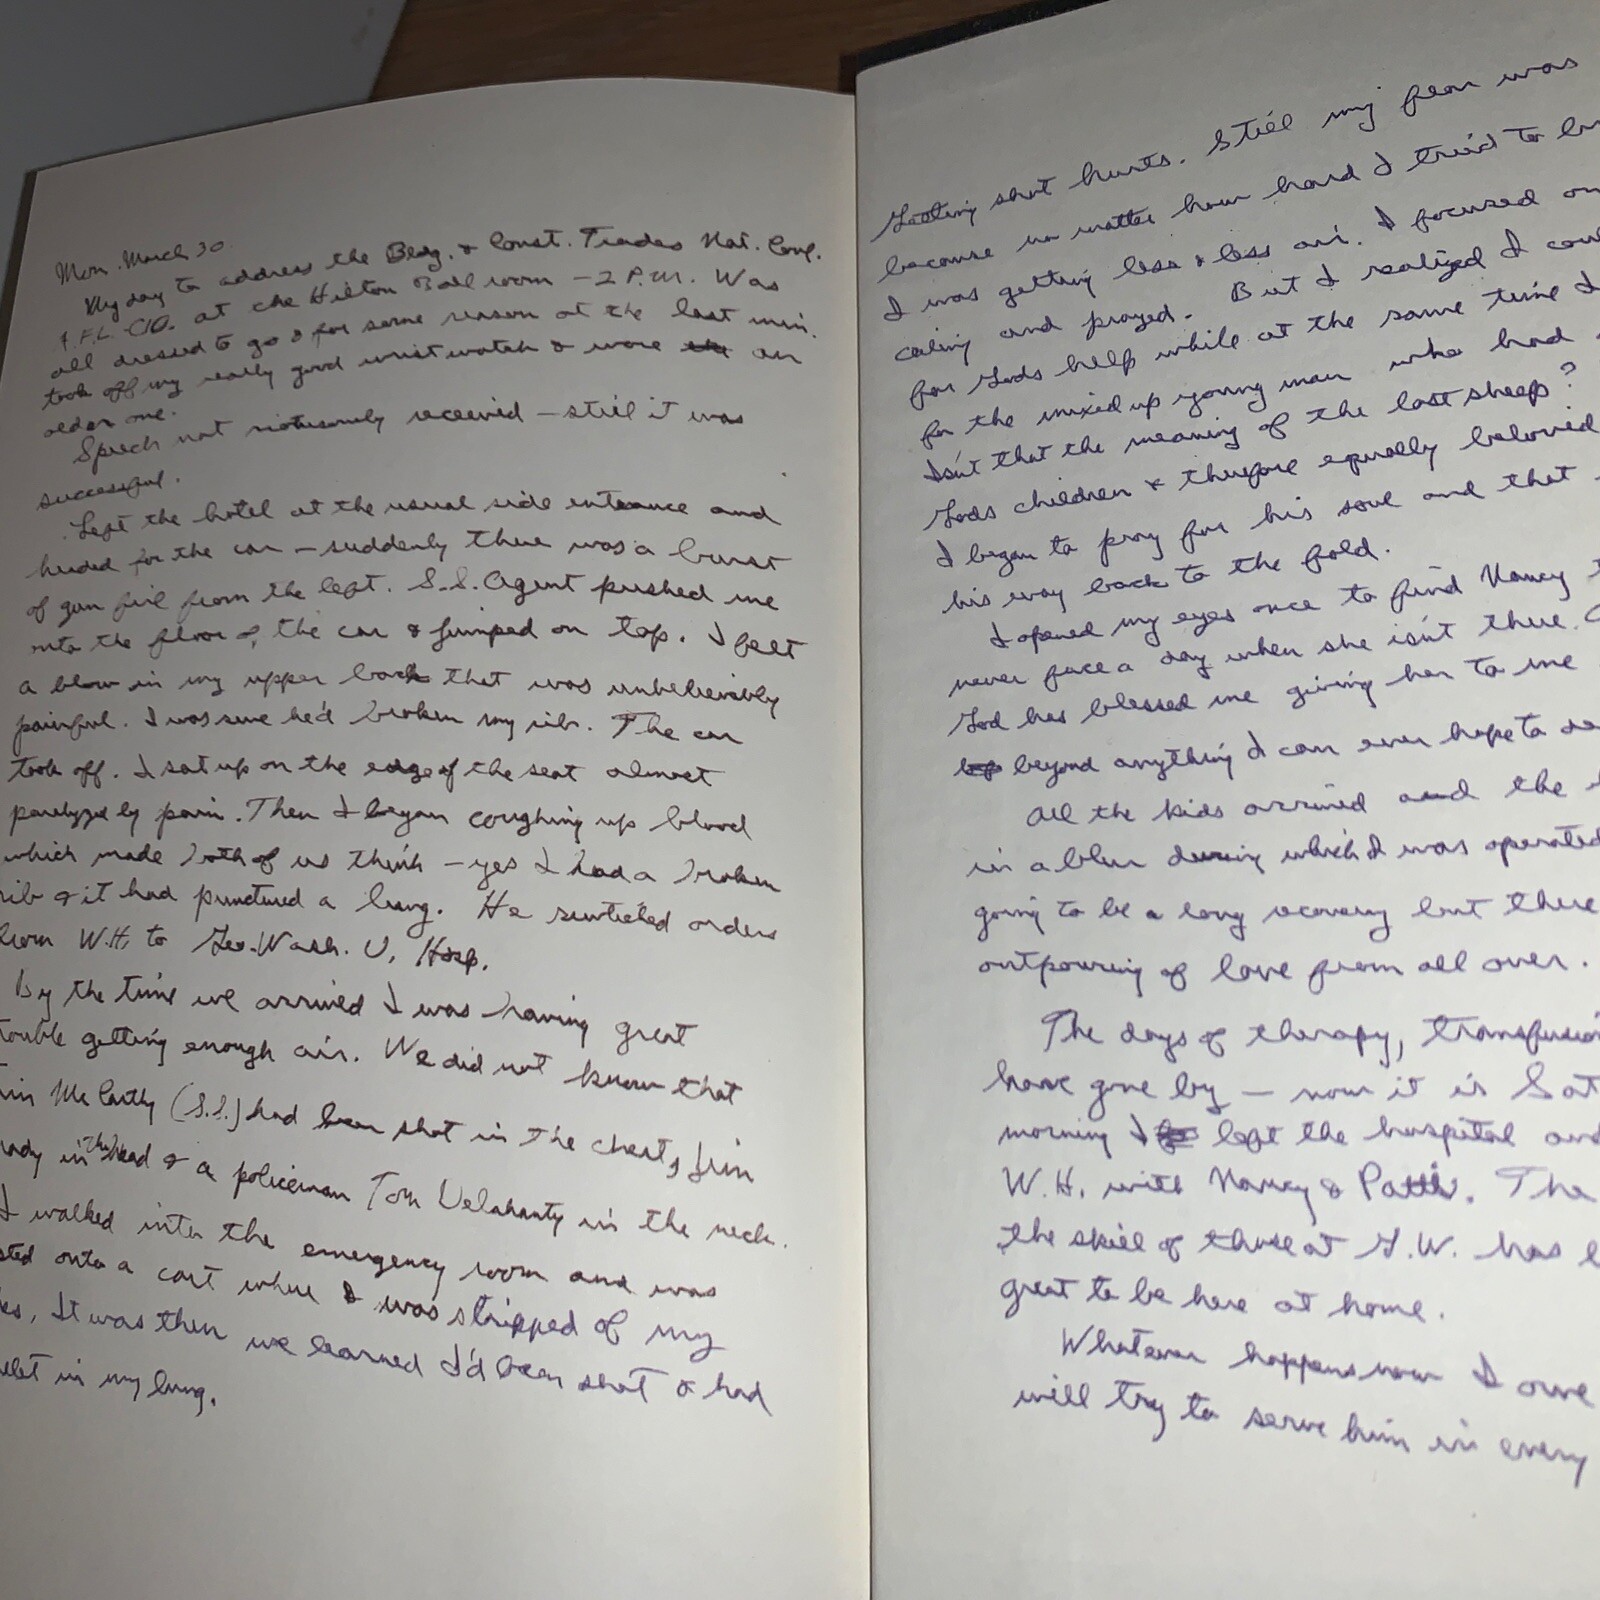 Mon. March 30
My day to address the Bldg. & Const. Trades Nat. Conf.
A.F.L. CIO. at the Hilton Ball room – 2 P.M. Was
all dressed to go & for some reason at the last min.
took off my really good wrist watch & wore an
older one.
Speech not riotously received – still it was
successful.
Left the hotel at the usual side entrance and
headed for the car – suddenly there was a burst
of gun fire from the left. S.S. Agent pushed me
onto the floor of the car & jumped on top. I felt
a blow in my upper back that was unbelievably
painful. I was sure he'd broken my rib. The car
took off. I sat up on the edge of the seat almost
paralyzed by pain. Then I began coughing up blood
which made both of us think – yes I had a broken
rib & it had punctured a lung. He switched orders
from W.H. to Geo. Wash. U. Hosp.
By the time we arrived I was having great
trouble getting enough air. We did not know that
Tim McCarthy (S.S.) had been shot in the chest, Jim
in the head & a policeman Tom Delahanty in the neck.
I walked into the emergency room and was
onto a cart where I was stripped of my
It was then we learned I'd been shot & had
in my lung.
Getting shot hurts. Still my fear was
because no matter how hard I tried to
I was getting less & less air. I focused on
ceiling and prayed. But I realized I
for Gods help while at the same time I
for the mixed up young man who had
Isn't that the meaning of the lost sheep?
Gods children & therefore equally beloved
I began to pray for his soul and that
his way back to the fold.
I opened my eyes once to find Nancy
never face a day when she isn't there.
God has blessed me giving her to me
beyond anything I can ever hope to
All the kids arrived and the
in a blur during which I was operated
going to be a long recovery but there
outpouring of love from all over.
The days of therapy,
have gone by – now it is
morning I left the hospital and
W.H. with Nancy & Patti. The
the skill of those at G.W. has
great to be here at home.
Whatever happens now I owe
will try to serve him in every